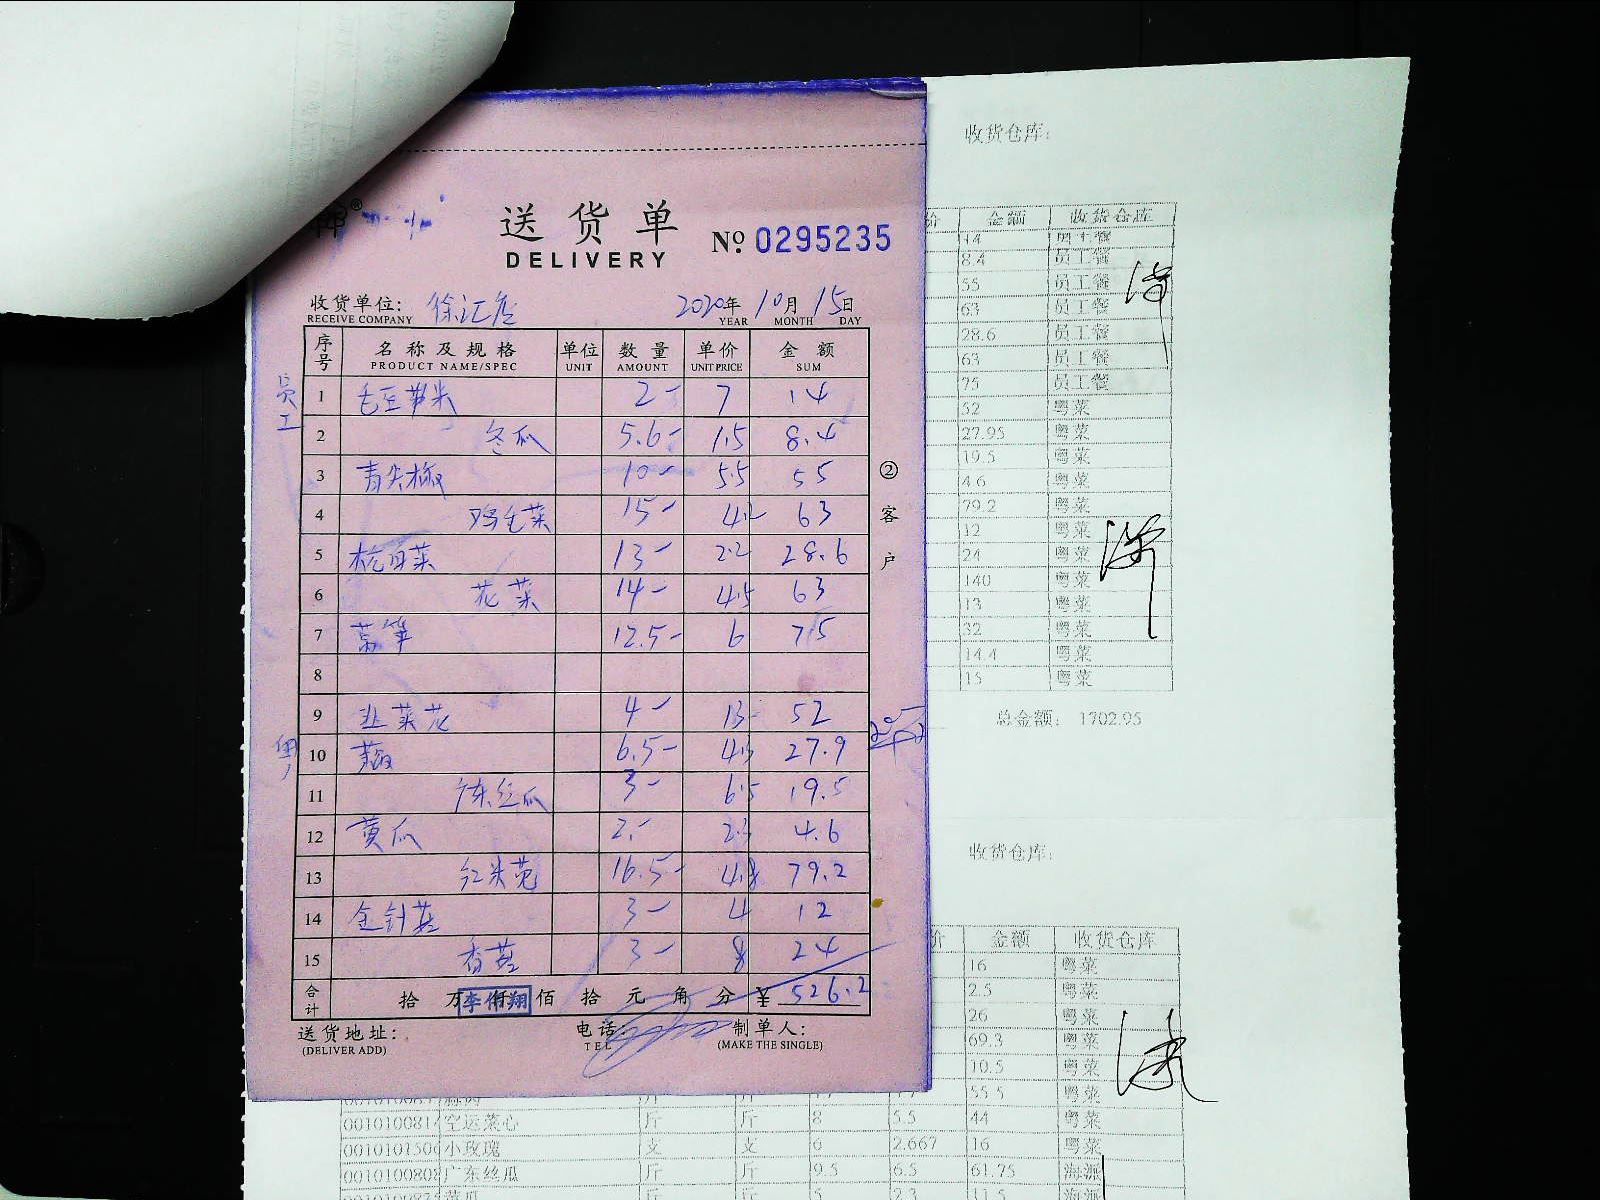 送货单
DELIVERY
№ 0295235
收货单位: 徐汇店 2020年10月15日
RECEIVE COMPANY YEAR MONTH DAY
序号 名称及规格 单位 数量 单价 金额
PRODUCT NAME/SPEC UNIT AMOUNT UNIT PRICE SUM
员工
1 毛豆米 2 7 14
2 冬瓜 5.6 1.5 8.4
3 青尖椒 10 5.5 55
4 鸡毛菜 15 4.2 63
5 杭白菜 13 2.2 28.6
6 花菜 14 4.5 63
7 莴笋 12.5 6 75
8
9 韭菜花 4 13 52
粤
10 6.5 4.3 27.9
11 丝瓜 3 6.5 19.5
12 黄瓜 2 2.3 4.6
13 红米苋 16.5 4.8 79.2
14 金针菇 3 4 12
15 香菇 3 8 24
合计 拾 万 仟 佰 拾 元 角 分 ¥ 526.2
李伟翔
送货地址: 电话: 制单人:
(DELIVER ADD) TEL (MAKE THE SINGLE)
②客户
收货仓库:
价 金额 收货仓库
14 员工餐
8.4 员工餐
55 员工餐
63 员工餐
28.6 员工餐
63 员工餐
75 员工餐
52 粤菜
27.95 粤菜
19.5 粤菜
4.6 粤菜
79.2 粤菜
12 粤菜
24 粤菜
140 粤菜
13 粤菜
32 粤菜
14.4 粤菜
15 粤菜
总金额: 1702.95
收货仓库:
价 金额 收货仓库
16 粤菜
2.5 粤菜
26 粤菜
69.3 粤菜
10.5 粤菜
55.5 粤菜
001010081 空运菜心 斤 斤 8 5.5 44 粤菜
001010150 小玫瑰 支 支 6 2.667 16 粤菜
001010080 广东丝瓜 斤 斤 9.5 6.5 61.75 海派
斤 斤 5 2.3 11.5 海派